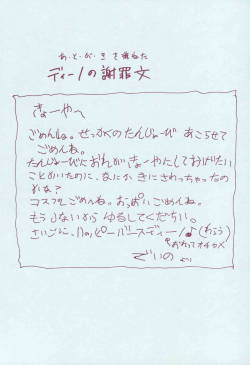 あ・と・が・き を兼ねた
ディーノの謝罪文
きょーやへ
ごめんね。せっかくのたんじょーび おこらせて
ごめんね。
たんじょーびにおれがきょーやにしてあげたい
ことかいたのに、なにか きにさわっちゃったの
かな?
コスプレごめんね。おっぱいごめんね。
もうしないから ゆるしてください。
さいごに、ハッピーバースディー!♪(わらう)
でぃの より